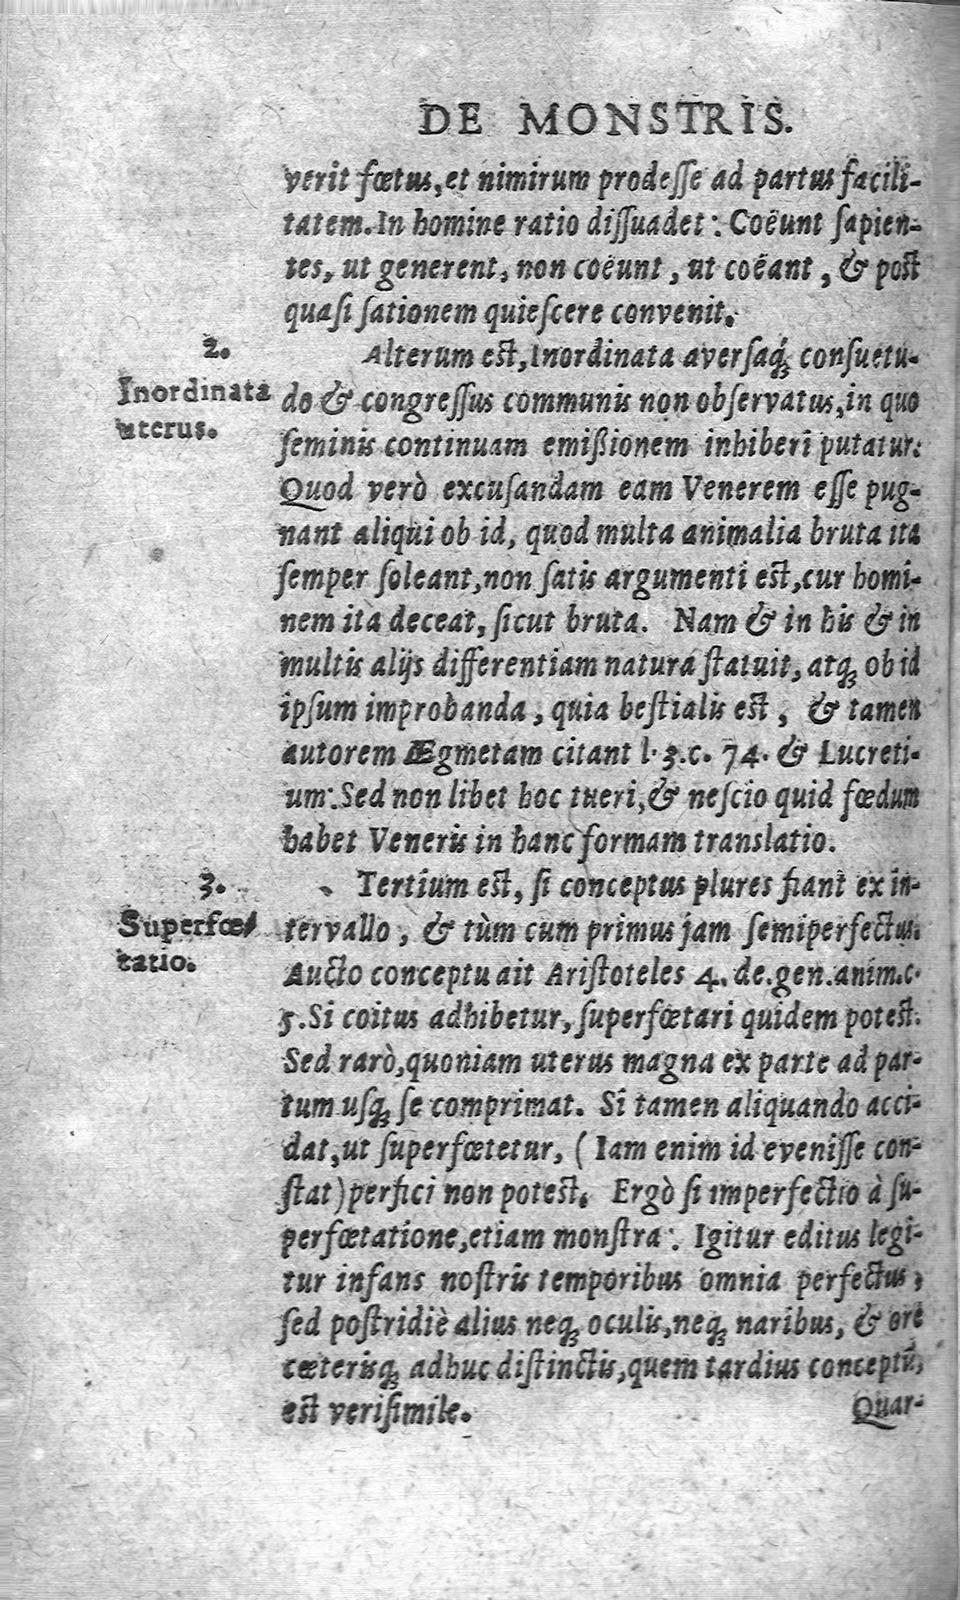 DE MONSTRIS.
verit fœtus, et nimirum prodeſſe ad partus facili-
tatem. In homine ratio diſſuadet: Coëunt ſapien-
tes, ut generent, non coëunt, ut coëant, & post
quaſi ſationem quieſcere convenit.
2.
Inordinata
uterus.
Alterum est, Inordinata averſaq́; conſuetu-
do & congreſſus communis non obſervatus, in quo
ſeminis continuam emißionem inhiberi putatur:
Quod verò excuſandam eam Venerem eſſe pug-
nant aliqui ob id, quod multa animalia bruta ita
ſemper ſoleant, non ſatis argumenti est, cur homi-
nem ita deceat, ſicut bruta. Nam & in his & in
multis alijs differentiam natura ſtatuit, atq; ob id
ipſum improbanda, quia beſtialis est, & tamen
autorem Ægmetam citant l. 3. c. 74. & Lucreti-
um: Sed non libet hoc tueri, & neſcio quid fœdum
habet Veneris in hanc formam translatio.
3.
Superfœ-
tatio.
Tertium est, ſi conceptus plures fiant ex in-
tervallo, & tùm cum primus jam ſemiperfectus.
Aucto conceptu ait Ariſtoteles 4. de. gen. anim. c.
5. Si coitus adhibetur, ſuperfœtari quidem potest.
Sed rarò, quoniam uterus magna ex parte ad par-
tum uſq; ſe comprimat. Si tamen aliquando acci-
dat, ut ſuperfœtetur, (Iam enim id eveniſſe con-
ſtat) perfici non potest. Ergò ſi imperfectio à ſu-
perfœtatione, etiam monſtra: Igitur editus legi-
tur infans noſtris temporibus omnia perfectus,
ſed poſtridiè alius neq; oculis, neq; naribus, & ore
cæterisq; adhuc diſtinctis, quem tardius conceptũ,
est veriſimile.
Quar-